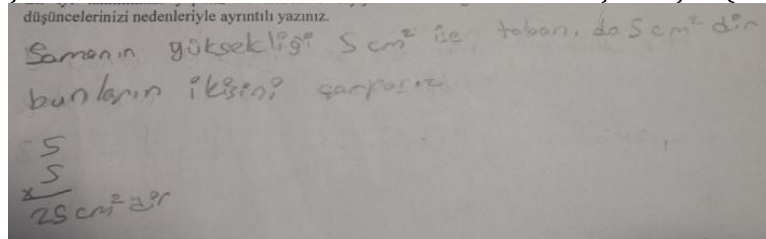 düşüncelerinizi nedenleriyle ayrıntılı yazınız.
Samanın yüksekliği 5 cm² ise tabanı da 5 cm² dir
bunların ikisini çarparız
5
x 5
25 cm² dir